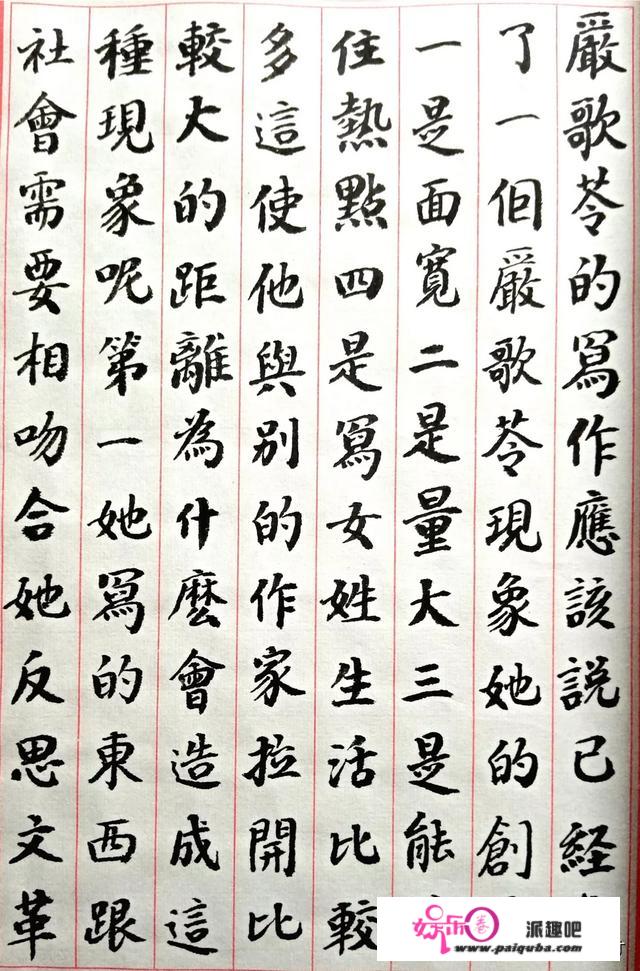 嚴歌苓的寫作應該說已經
了一個嚴歌苓現象她的創
一是面寬二是量大三是能
住熱點四是寫女姓生活比較
多這使他與别的作家拉開比
較大的距離為什麼會造成這
種現象呢第一她寫的東西跟
社會需要相吻合她反思文革
娱乐卷 派趣吧
www.paiquba.com